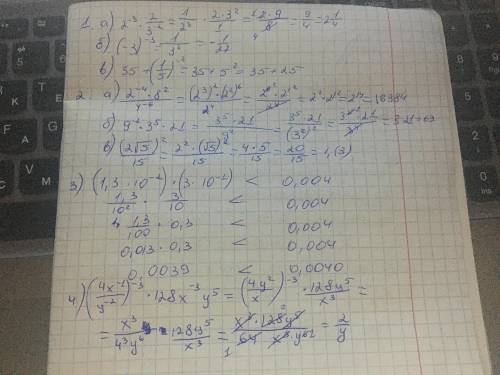 1. а) 2⁻³ · 2/3⁻² = 1/2³ · 2·3²/1 = 2·9/8 = 9/4 = 2 1/4
б) (-3)⁻³ = 1/3³ = -1/27
в) 35 · (1/5)⁻² = 35 + 5² = 35 + 25
2. а) 2⁻⁴ · 8² / 4⁻⁶ = = 2² · 2¹² = 2¹⁴ = 16384
б) 9⁻² · 3⁵ · 21 = 3⁵ · 21 / 9² = 3⁵ · 21 / (3²)² = 3⁵ · 21 / 3⁴ = 3·21 = 63
в) (2√5)² / 15 = 2² · (√5)² / 15 = 4 · 5 / 15 = 20/15 = 1,(3)
3) (1,3 · 10⁻²) · (3 · 10⁻¹) < 0,004
1,3/10² · 3/10 < 0,004
1,3/100 · 0,3 < 0,004
0,013 · 0,3 < 0,004
0,0039 < 0,0040
4) (4x⁻¹/y⁻²)⁻³ · 128x⁻³ y⁵ = (4y²/x)⁻³ · 128y⁵/x³ =
= x³/4³y⁶ · 128y⁵/x³ = x³ · 128y⁵ / 64 x³ y⁶ = 2/y